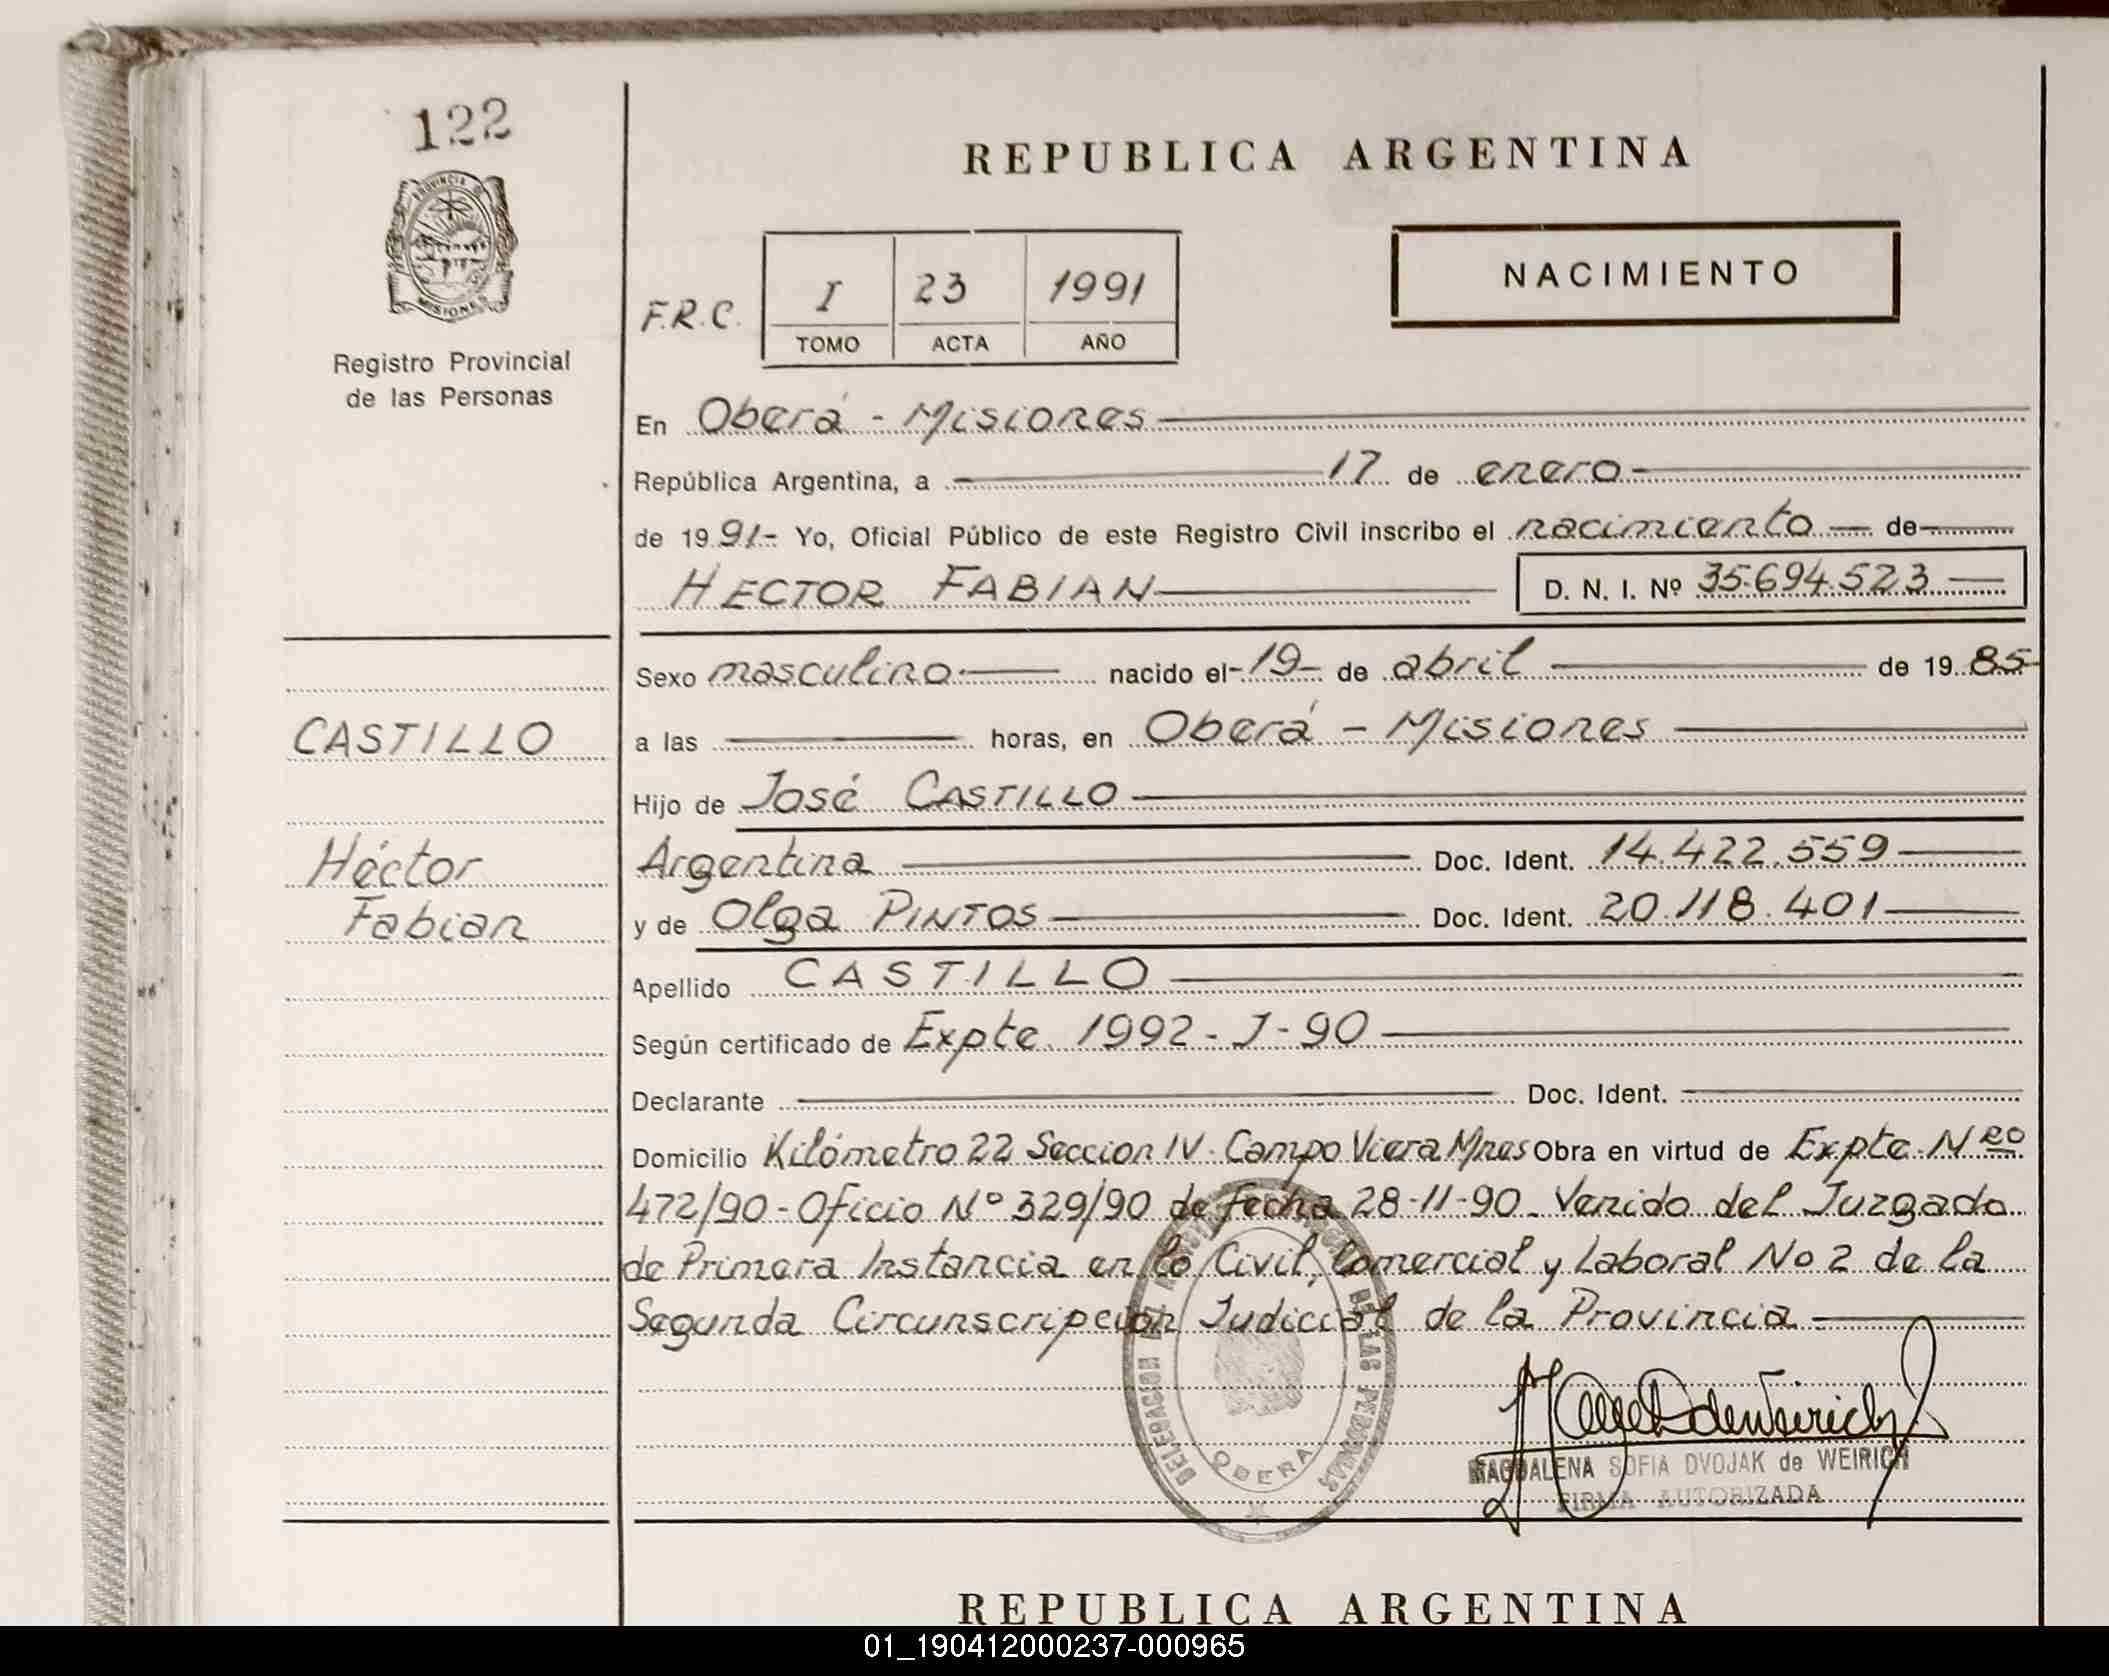 122
PROVINCIA D
MISIONES
Registro Provincial
de las Personas
REPUBLICA ARGENTINA
NACIMIENTO
F.R.C.
I 23 1991
TOMO ACTA AÑO
En Oberá - Misiones
República Argentina, a 17 de enero
de 19 91- Yo, Oficial Público de este Registro Civil inscribo el nacimiento de
HECTOR FABIAN D. N. I. Nº 35.694.523
Sexo masculino nacido el 19 de abril de 19 85
CASTILLO
a las horas, en Oberá - Misiones
Hijo de José CASTILLO
Héctor
Argentina Doc. Ident. 14.422.559
Fabian
y de Olga PINTOS Doc. Ident. 20.118.401
Apellido CASTILLO
Según certificado de Expte. 1992 - J - 90
Declarante Doc. Ident.
Domicilio Kilómetro 22 Seccion IV. Campo Viera Mnes Obra en virtud de Expte. Nro
472/90 - Oficio Nº 329/90 de fecha 28-11-90. Venido del Juzgado
de Primera Instancia en lo Civil, Comercial y Laboral No 2 de la
Segunda Circunscripción Judicial de la Provincia
DELEGACION DE LAS PERSONAS
OBERA
MAGDALENA SOFIA DVOJAK de WEIRICH
FIRMA AUTORIZADA
REPUBLICA ARGENTINA
01_190412000237-000965